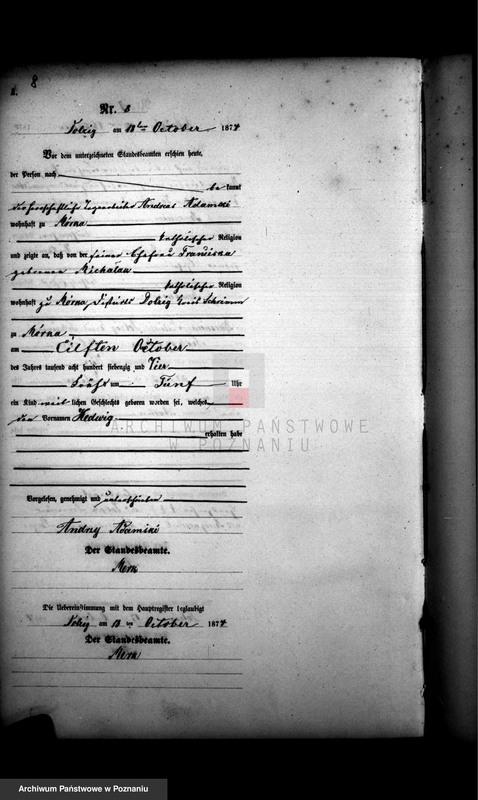 8
Nr. 8
Dolzig am 13ten October 1874
Vor dem unterzeichneten Standesbeamten erschien heute,
der Person nach
be kannt
der herrschaftliche Tagearbeiter Andreas Adamski
wohnhaft zu Mórna
katholischer Religion
und zeigte an, daß von der seiner Ehefrau Franciska
geborenen Michalak
katholischer Religion
wohnhaft zu Mórna, Distrikt Dolzig Kreis Schrimm
zu Mórna
am Eilften October
des Jahres tausend acht hundert siebenzig und Vier
Früh um Fünf Uhr
ein Kind weiblichen Geschlechts geboren worden sei, welches
den Vornamen Hedwig
erhalten habe
ARCHIWUM PAŃSTWOWE
W POZNANIU
Vorgelesen, genehmigt und unterschrieben
Andrzy Adamski
Der Standesbeamte.
Die Uebereinstimmung mit dem Hauptregister beglaubigt
Dolzig am 13 ten October 1874
Der Standesbeamte.
Archiwum Państwowe w Poznaniu